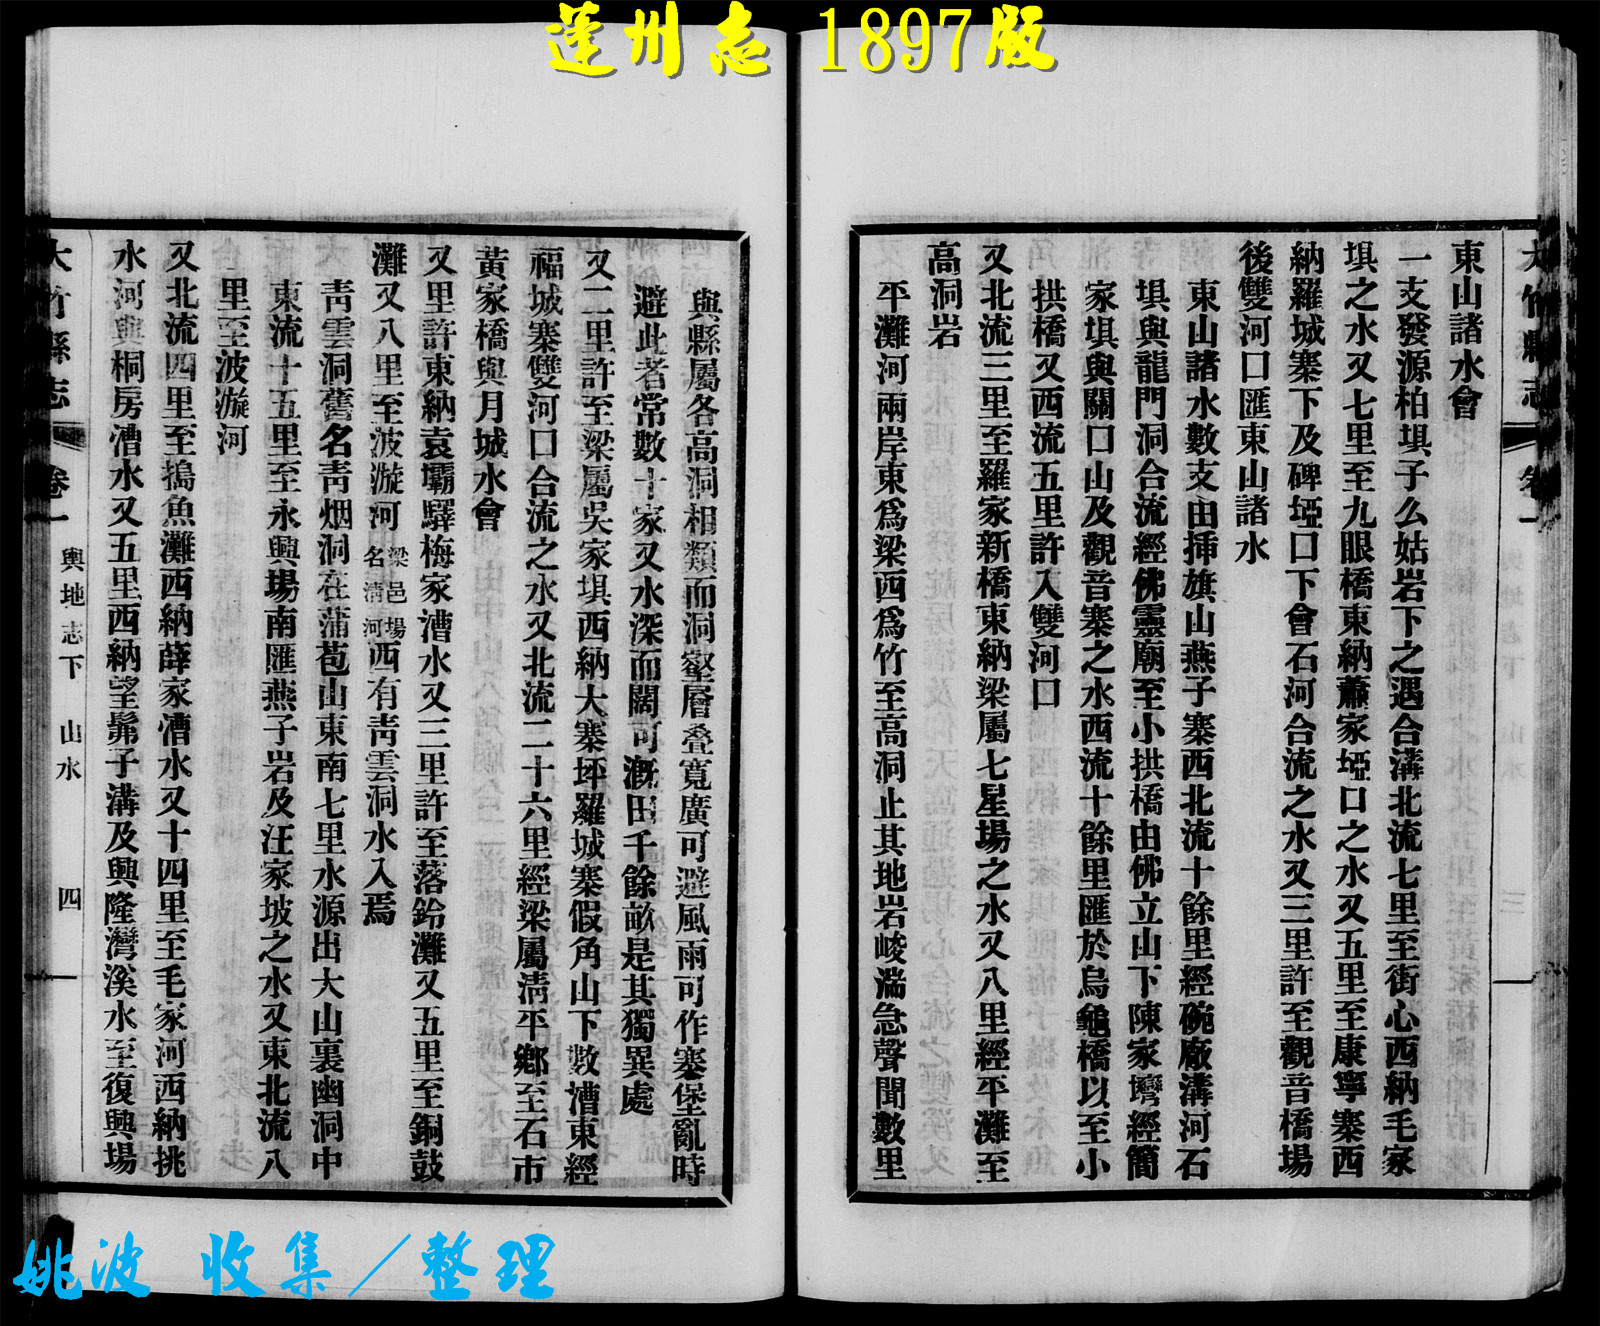 蓬州志 1897版
大竹縣志 卷一
東山諸水會
一支發源柏埧子么姑岩下之遇合溝北流七里至街心西納毛家
埧之水又七里至九眼橋東納蕭家埡口之水又五里至康寧寨西
納羅城寨下及碑埡口下會石河合流之水又三里許至觀音橋場
後雙河口匯東山諸水
東山諸水數支由揷旗山燕子寨西北流十餘里經碗廠溝河石
埧與龍門洞合流經佛靈廟至小拱橋由佛立山下陳家壪經簡
家埧與關口山及觀音寨之水西流十餘里匯於烏龜橋以至小
拱橋又西流五里許入雙河口
又北流三里至羅家新橋東納梁屬七星場之水又八里經平灘至
高洞岩
平灘河兩岸東爲梁西爲竹至高洞止其地岩峻湍急聲聞數里
與縣屬各高洞相類而洞壑層叠寬廣可避風雨可作寨堡亂時
避此者常數十家又水深而闊可漑田千餘畝是其獨異處
又二里許至梁屬吳家埧西納大寨坪羅城寨假角山下數漕東經
福城寨雙河口合流之水又北流二十六里經梁屬淸平鄉至石市
黃家橋與月城水會
又里許東納袁壩驛梅家漕水又三里許至落鈴灘又五里至銅鼓
灘又八里至波漩河梁邑場名淸河西有靑雲洞水入焉
靑雲洞舊名靑烟洞在蒲苞山東南七里水源出大山裏幽洞中
東流十五里至永興場南匯燕子岩及汪家坡之水又東北流八
里至波漩河
又北流四里至搗魚灘西納薛家漕水又十四里至毛家河西納挑
水河與桐房漕水又五里西納望髴子溝及興隆灣溪水至復興場
大竹縣志 卷一 輿地志下 山水 四
姚波 收集／整理